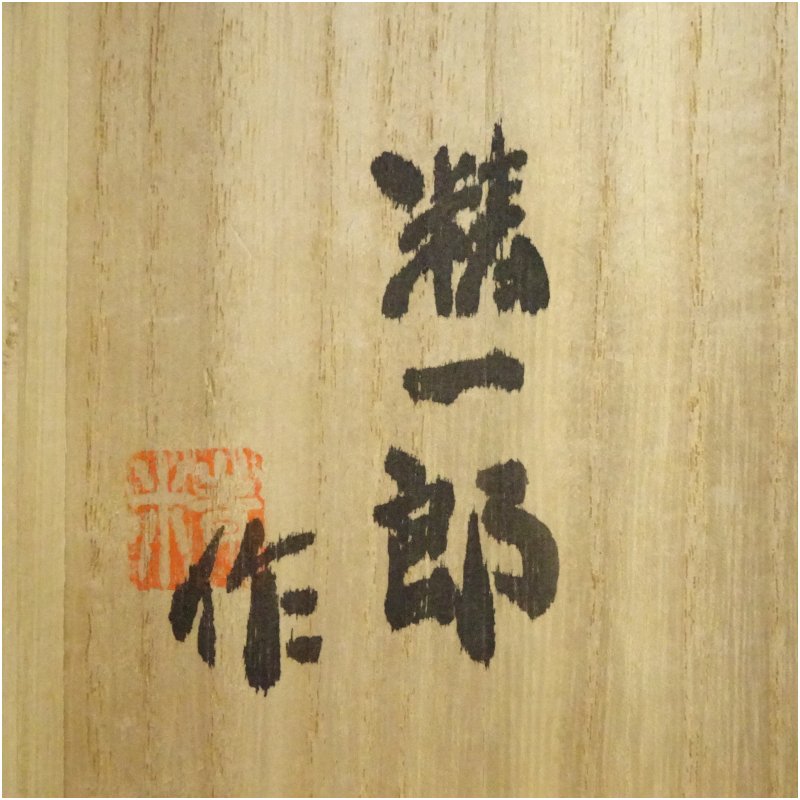 精一郎
作